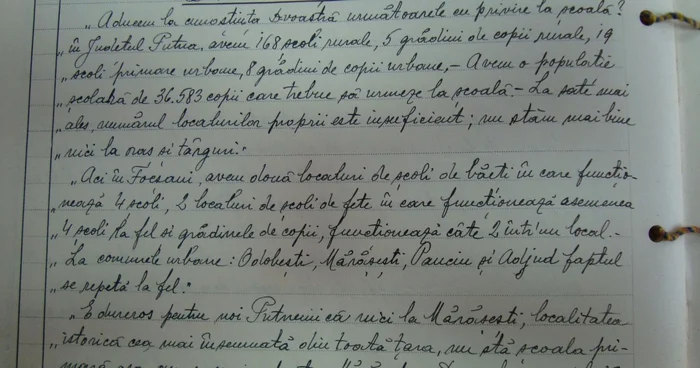 „Aducem la cunoștința Dvoastră următoarele cu privire la școală?
„în Județul Putna, avem 168 școli rurale, 5 grădini de copii rurale, 19
„școli primare urbane, 8 grădini de copii urbane,– Avem o populatie
„școlară de 36.583 copii care trebue să urmeze la școală.– La sate mai
„ales, numărul localurilor proprii este insuficient; nu stăm mai bine
„nici la oraș si târguri."
„Aci în Focșani, avem două localuri de școli de băeti în care functio-
„nează 4 școli, 2 localuri de școli de fete în care funcționează asemenea
„4 școli la fel si grădinele de copii, funcționează câte 2 într'un local.–
„La comunele urbane: Odobești, Mărășești, Panciu și Adjud faptul
„se repetă la fel."
„E dureros pentru noi Putnenii că nici la Mărășești, localitatea
„istorică cea mai însemnată din toată țara, nu stă școala pri-